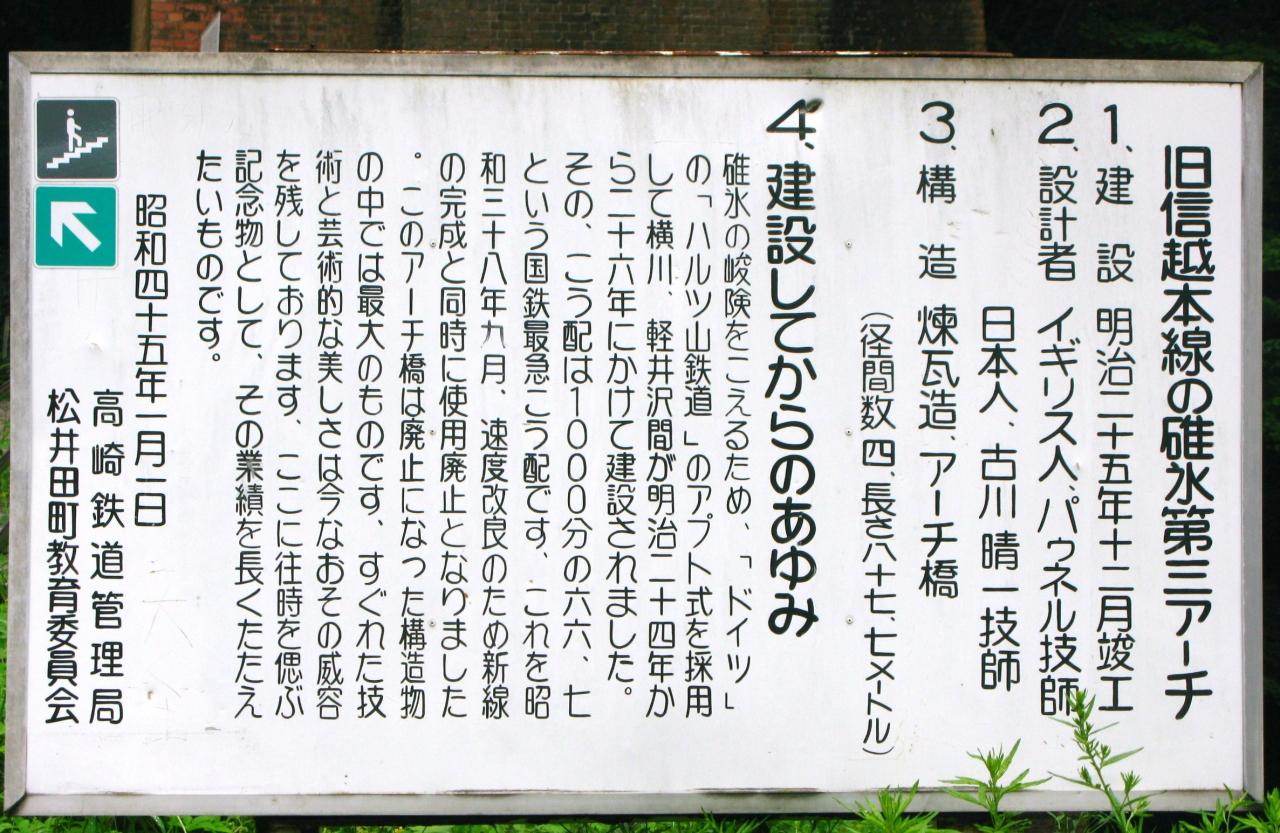 旧信越本線の碓氷第三アーチ
1、建設 明治二十五年十二月竣工
2、設計者 イギリス人、パゥネル技師
日本人、古川晴一技師
3、構造 煉瓦造、アーチ橋
（径間数四、長さ八十七、七メートル）
4、建設してからのあゆみ
碓氷の峻険をこえるため、「ドイツ」
の「ハルツ山鉄道」のアプト式を採用
して横川、軽井沢間が明治二十四年か
ら二十六年にかけて建設されました。
その、こう配は1000分の六六、七
という国鉄最急こう配です、これを昭
和三十八年九月、速度改良のため新線
の完成と同時に使用廃止となりました
。このアーチ橋は廃止になった構造物
の中では最大のものです、すぐれた技
術と芸術的な美しさは今なおその威容
を残しております、ここに往時を偲ぶ
記念物として、その業績を長くたたえ
たいものです。
昭和四十五年一月一日
高崎鉄道管理局
松井田町教育委員会